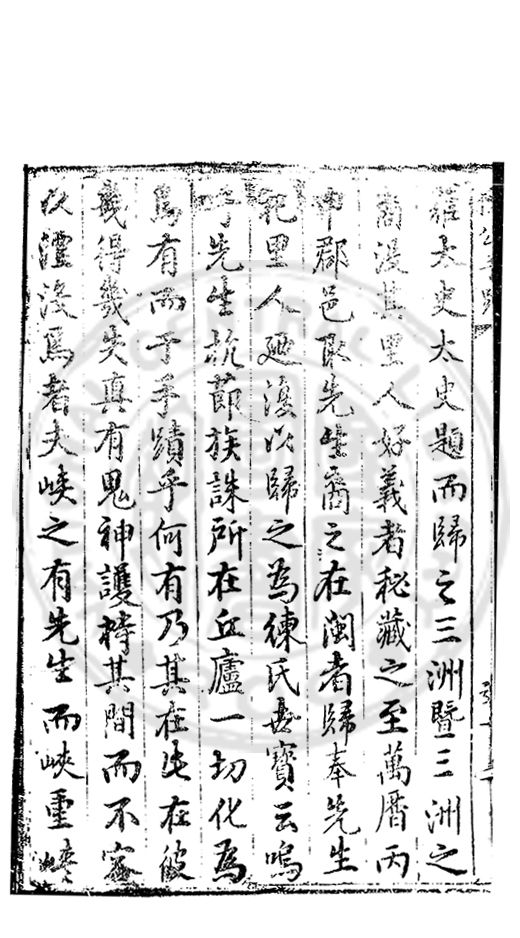 羅太史太史題而歸之三洲暨三洲之
裔沒其里人好義者秘藏之至萬曆丙
申郡邑取先生裔之在閩者歸奉先生
祀里人乃復以歸之為練氏世寶云嗚
呼先生抗節族誅所在丘廬一切化為
烏有而于手蹟乎何有乃其在此在彼
幾得幾失真有鬼神護持其間而不容
以湮沒焉者夫峽之有先生而峽重峽